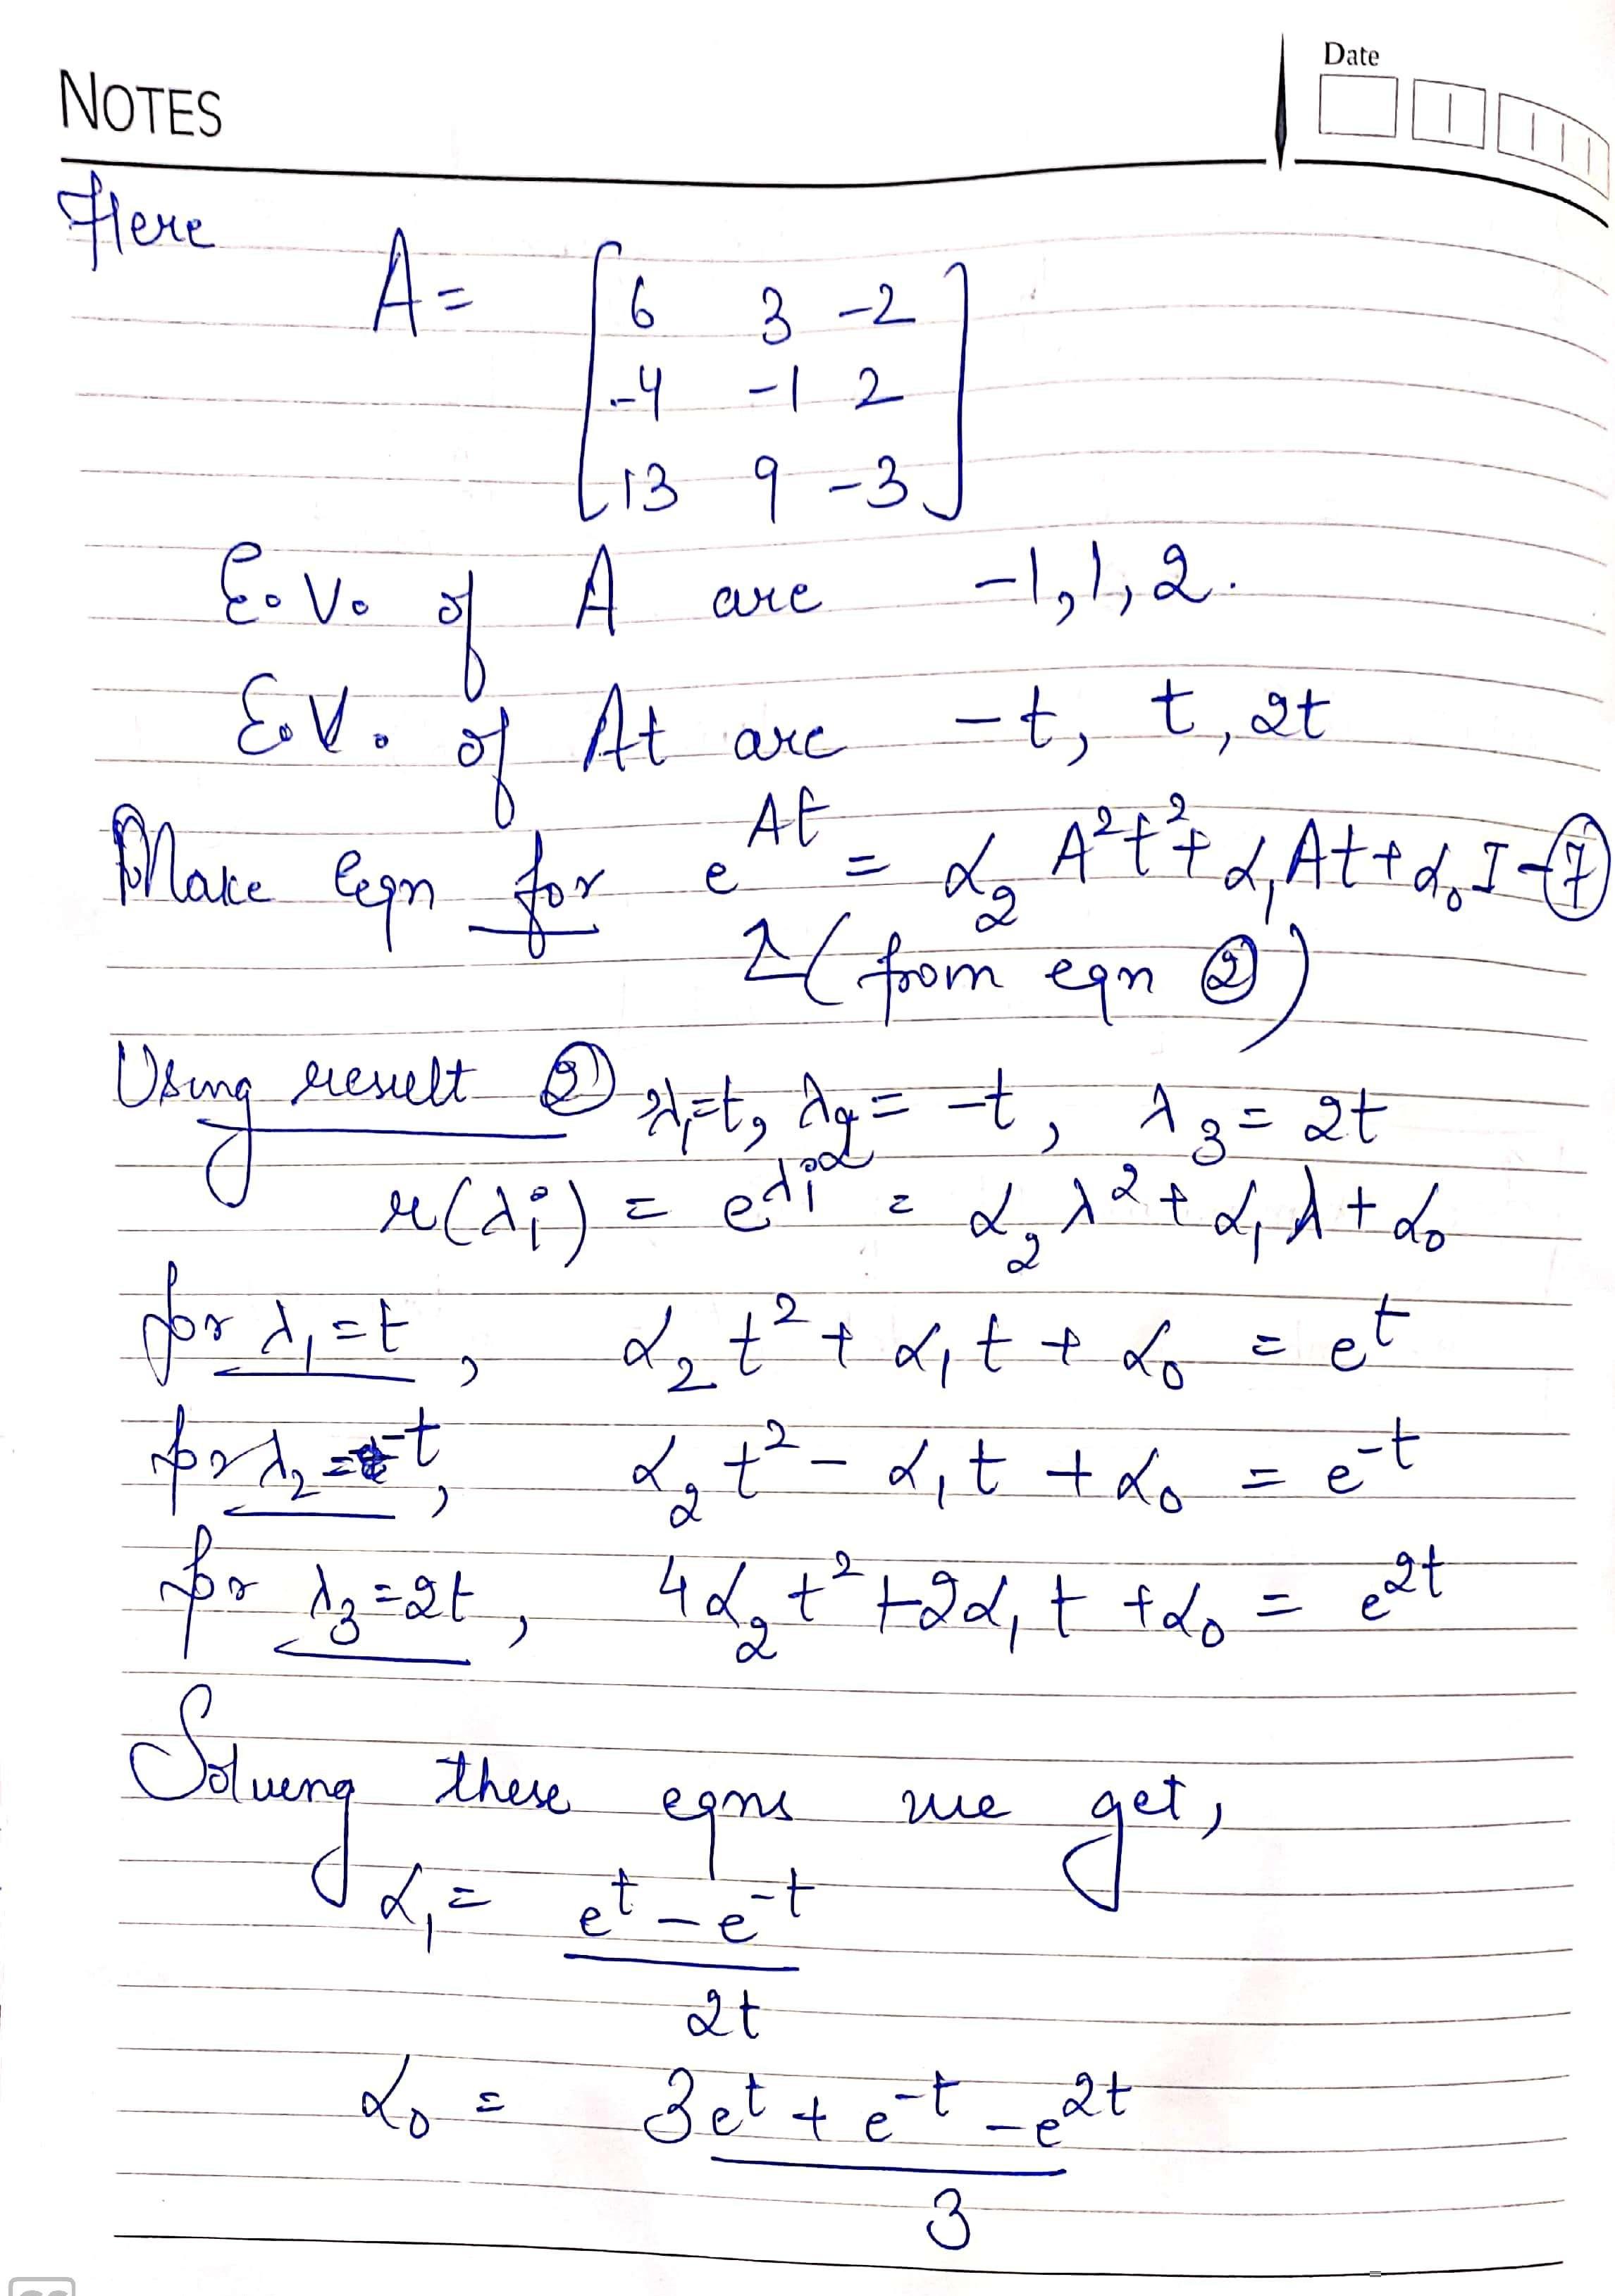 NOTES
Date
Here
A = [ 6 3 -2
-4 -1 2
13 9 -3 ]
E.V. of A are -1, 1, 2.
E.V. of At are -t, t, 2t
Make eqn for e^{At} = α₂ A²t² + α₁ At + α₀ I - ⑦
(from eqn ②)
Using result ② λ₁=t, λ₂= -t, λ₃= 2t
r(λi) = e^{λi} = α₂ λ² + α₁ λ + α₀
for λ₁=t, α₂ t² + α₁ t + α₀ = e^t
for λ₂=-t, α₂ t² - α₁ t + α₀ = e^{-t}
for λ₃=2t, 4α₂ t² + 2α₁ t + α₀ = e^{2t}
Solving these eqns we get,
α₁ = e^t - e^{-t}
2t
α₀ = 3e^t + e^{-t} - e^{2t}
3